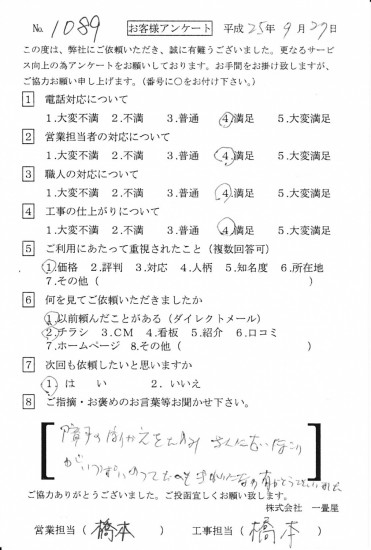 No. 1089 お客様アンケート 平成25年9月27日
この度は、弊社にご依頼いただき、誠に有難うございました。更なるサービ
ス向上の為アンケートをお願いしております。お手間をお掛け致しますが、
ご協力お願い申し上げます。(番号に○をお付け下さい。)
1 電話対応について
1.大変不満 2.不満 3.普通 4.満足 5.大変満足
2 営業担当者の対応について
1.大変不満 2.不満 3.普通 4.満足 5.大変満足
3 職人の対応について
1.大変不満 2.不満 3.普通 4.満足 5.大変満足
4 工事の仕上がりについて
1.大変不満 2.不満 3.普通 4.満足 5.大変満足
5 ご利用にあたって重視されたこと(複数回答可)
1.価格 2.評判 3.対応 4.人柄 5.知名度 6.所在地
7.その他( )
6 何を見てご依頼いただきましたか
1.以前頼んだことがある(ダイレクトメール)
2.チラシ 3.CM 4.看板 5.紹介 6.口コミ
7.ホームページ 8.その他( )
7 次回も依頼したいと思いますか
1.はい 2.いいえ
8 ご指摘・お褒めのお言葉等お聞かせ下さい。
障子の
ご協力ありがとうございました。ご投函宜しくお願い致します。
株式会社 一畳屋
営業担当(橋本) 工事担当(橋本)